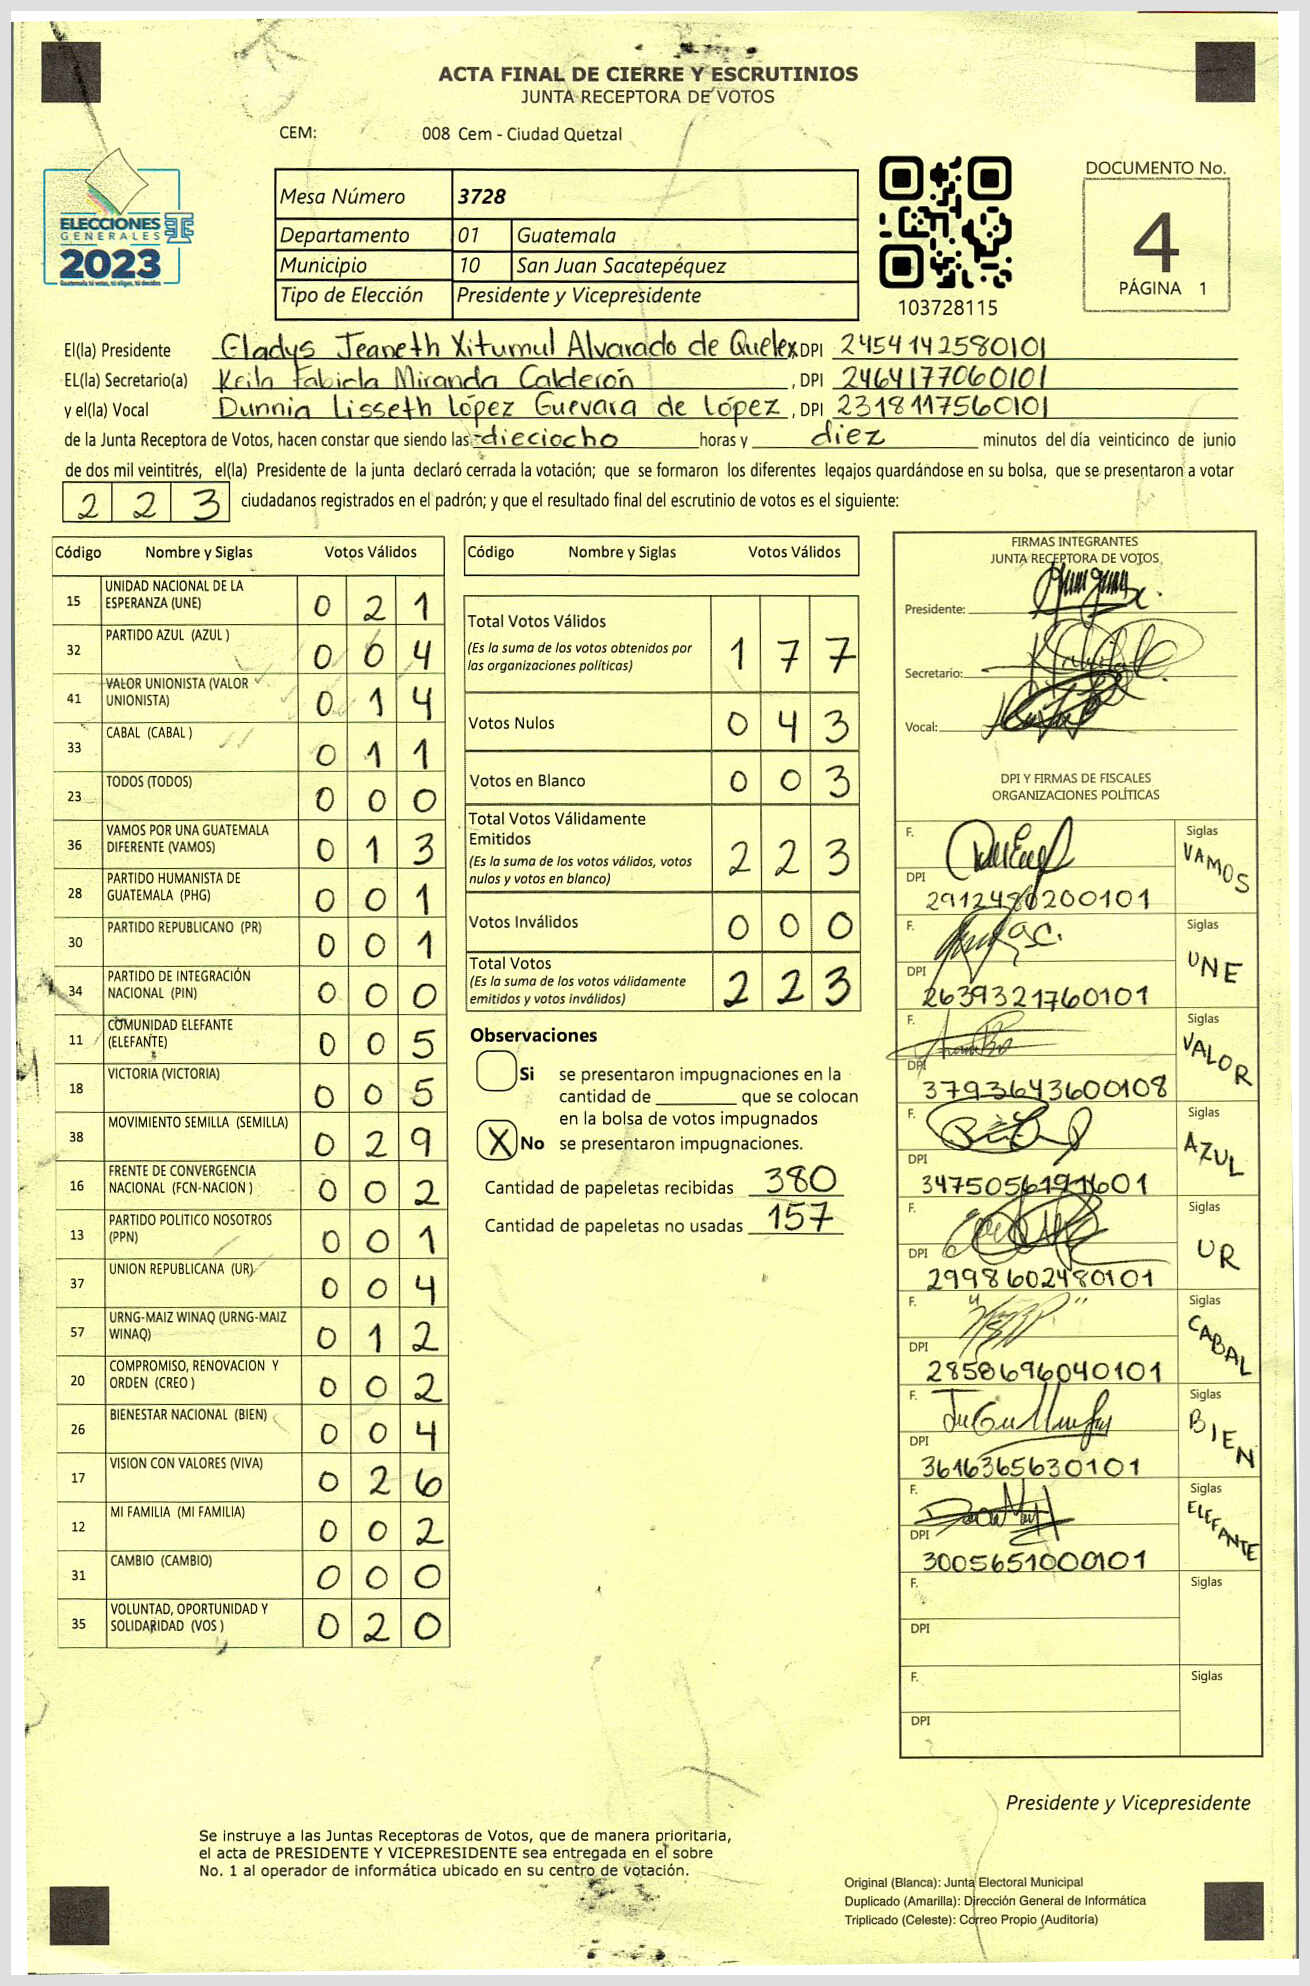 ACTA FINAL DE CIERRE Y ESCRUTINIOS
JUNTA RECEPTORA DE VOTOS
CEM: 008 Cem - Ciudad Quetzal
ELECCIONES
GENERALES
2023
Guatemala tú votas, tú eliges, tú decides
Mesa Número 3728
Departamento 01 Guatemala
Municipio 10 San Juan Sacatepéquez
Tipo de Elección Presidente y Vicepresidente
103728115
DOCUMENTO No.
4
PÁGINA 1
El(la) Presidente Gladys Jeaneth Xitumul Alvarado de Quelex DPI 2454142580101
EL(la) Secretario(a) Keila Fabiola Miranda Calderón , DPI 2464177060101
y el(la) Vocal Dunnia Lisseth López Guevara de López , DPI 2318117560101
de la Junta Receptora de Votos, hacen constar que siendo las dieciocho horas y diez minutos del día veinticinco de junio
de dos mil veintitrés, el(la) Presidente de la junta declaró cerrada la votación; que se formaron los diferentes legajos guardándose en su bolsa, que se presentaron a votar
2 2 3 ciudadanos registrados en el padrón; y que el resultado final del escrutinio de votos es el siguiente:
Código Nombre y Siglas Votos Válidos
15 UNIDAD NACIONAL DE LA ESPERANZA (UNE) 0 2 1
32 PARTIDO AZUL (AZUL ) 0 0 4
41 VALOR UNIONISTA (VALOR UNIONISTA) 0 1 4
33 CABAL (CABAL ) 0 1 1
23 TODOS (TODOS) 0 0 0
36 VAMOS POR UNA GUATEMALA DIFERENTE (VAMOS) 0 1 3
28 PARTIDO HUMANISTA DE GUATEMALA (PHG) 0 0 1
30 PARTIDO REPUBLICANO (PR) 0 0 1
34 PARTIDO DE INTEGRACIÓN NACIONAL (PIN) 0 0 0
11 COMUNIDAD ELEFANTE (ELEFANTE) 0 0 5
18 VICTORIA (VICTORIA) 0 0 5
38 MOVIMIENTO SEMILLA (SEMILLA) 0 2 9
16 FRENTE DE CONVERGENCIA NACIONAL (FCN-NACION ) 0 0 2
13 PARTIDO POLITICO NOSOTROS (PPN) 0 0 1
37 UNION REPUBLICANA (UR) 0 0 4
57 URNG-MAIZ WINAQ (URNG-MAIZ WINAQ) 0 1 2
20 COMPROMISO, RENOVACION Y ORDEN (CREO ) 0 0 2
26 BIENESTAR NACIONAL (BIEN) 0 0 4
17 VISION CON VALORES (VIVA) 0 2 6
12 MI FAMILIA (MI FAMILIA) 0 0 2
31 CAMBIO (CAMBIO) 0 0 0
35 VOLUNTAD, OPORTUNIDAD Y SOLIDARIDAD (VOS ) 0 2 0
Código Nombre y Siglas Votos Válidos
Total Votos Válidos
(Es la suma de los votos obtenidos por
las organizaciones políticas) 1 7 7
Votos Nulos 0 4 3
Votos en Blanco 0 0 3
Total Votos Válidamente
Emitidos
(Es la suma de los votos válidos, votos
nulos y votos en blanco) 2 2 3
Votos Inválidos 0 0 0
Total Votos
(Es la suma de los votos válidamente
emitidos y votos inválidos) 2 2 3
Observaciones
Si se presentaron impugnaciones en la
cantidad de ________ que se colocan
en la bolsa de votos impugnados
X No se presentaron impugnaciones.
Cantidad de papeletas recibidas 380
Cantidad de papeletas no usadas 157
FIRMAS INTEGRANTES
JUNTA RECEPTORA DE VOTOS
Presidente:
Secretario:
Vocal:
DPI Y FIRMAS DE FISCALES
ORGANIZACIONES POLÍTICAS
F. Siglas VAMOS
DPI 2912480200101
F. Siglas UNE
DPI 2639321760101
F. Siglas VALOR
DPI 3793643600108
F. Siglas AZUL
DPI 3475056191601
F. Siglas UR
DPI 2998602480101
F. Siglas CABAL
DPI 2858696040101
F. Siglas BIEN
DPI 3616365630101
F. Siglas ELEFANTE
DPI 3005651000101
F. Siglas
DPI
F. Siglas
DPI
Presidente y Vicepresidente
Se instruye a las Juntas Receptoras de Votos, que de manera prioritaria,
el acta de PRESIDENTE Y VICEPRESIDENTE sea entregada en el sobre
No. 1 al operador de informática ubicado en su centro de votación.
Original (Blanca): Junta Electoral Municipal
Duplicado (Amarilla): Dirección General de Informática
Triplicado (Celeste): Correo Propio (Auditoría)